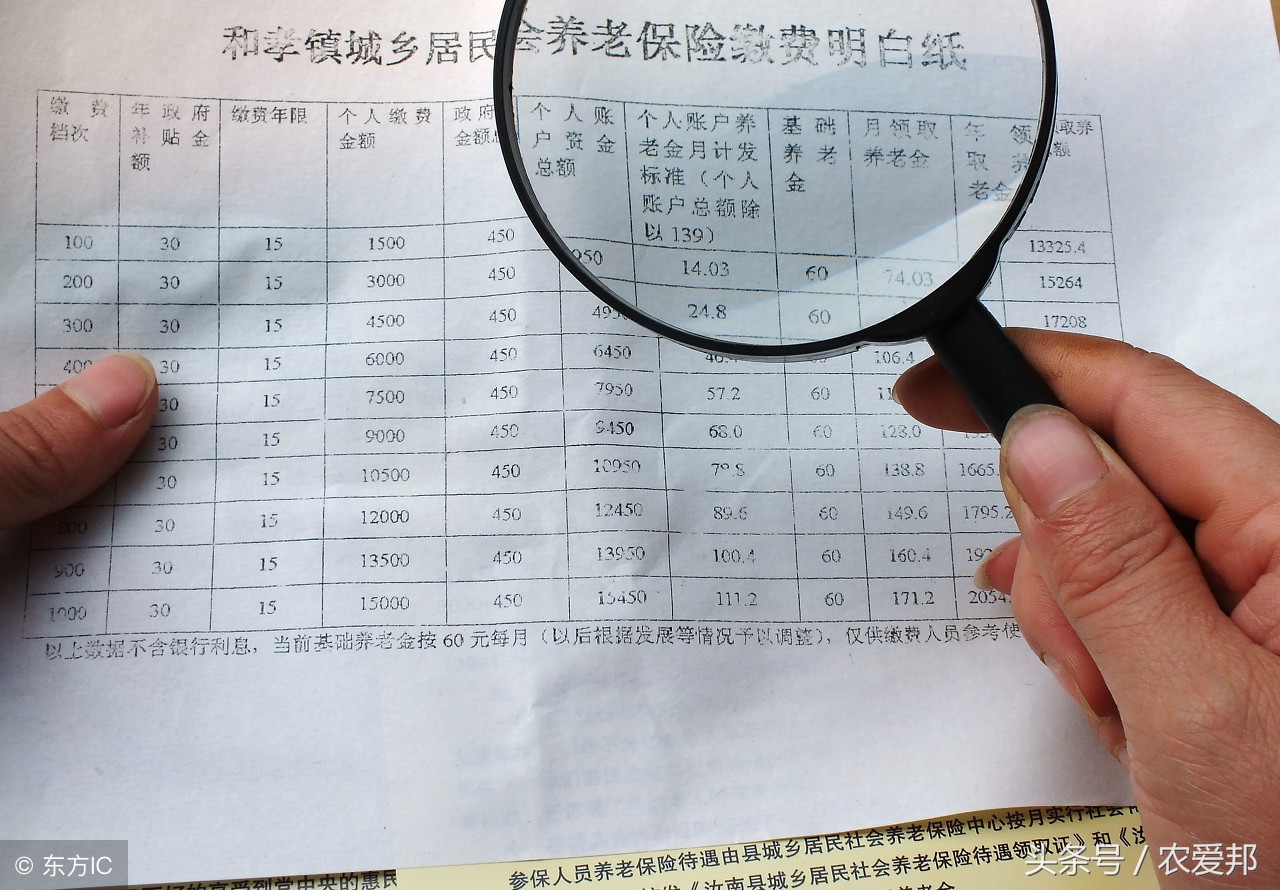 和孝镇城乡居民会养老保险缴费明白纸
缴费档次 年政府补贴金额 缴费年限 个人缴费金额 政府金额 个人账户资金总额 个人账户养老金月计发标准（个人账户总额除以139） 基础养老金 月领取养老金 年领取养老金 取养额
100 30 15 1500 450 950 14.03 60 74.03 13325.4
200 30 15 3000 450 24.8 60 15264
300 30 15 4500 450 17208
400 30 15 6000 450 6450 60 106.4
30 15 7500 450 7950 57.2 60
30 15 9000 450 9450 68.0 60 128.0
30 15 10500 450 10950 79.8 60 138.8 1665.
800 30 15 12000 450 12450 89.6 60 149.6 1795.2
900 30 15 13500 450 13950 100.4 60 160.4
1000 30 15 15000 450 15450 111.2 60 171.2 2054.
以上数据不含银行利息，当前基础养老金按60元每月（以后根据发展等情况予以调整），仅供缴费人员参考使
参保人员养老保险待遇由县城乡居民社会养老保险中心按月实行社会
《汝南县城乡居民社会养老保险待遇领取证》和《汝
的享受到党中央的惠民
© 东方IC
头条号 / 农爱邦